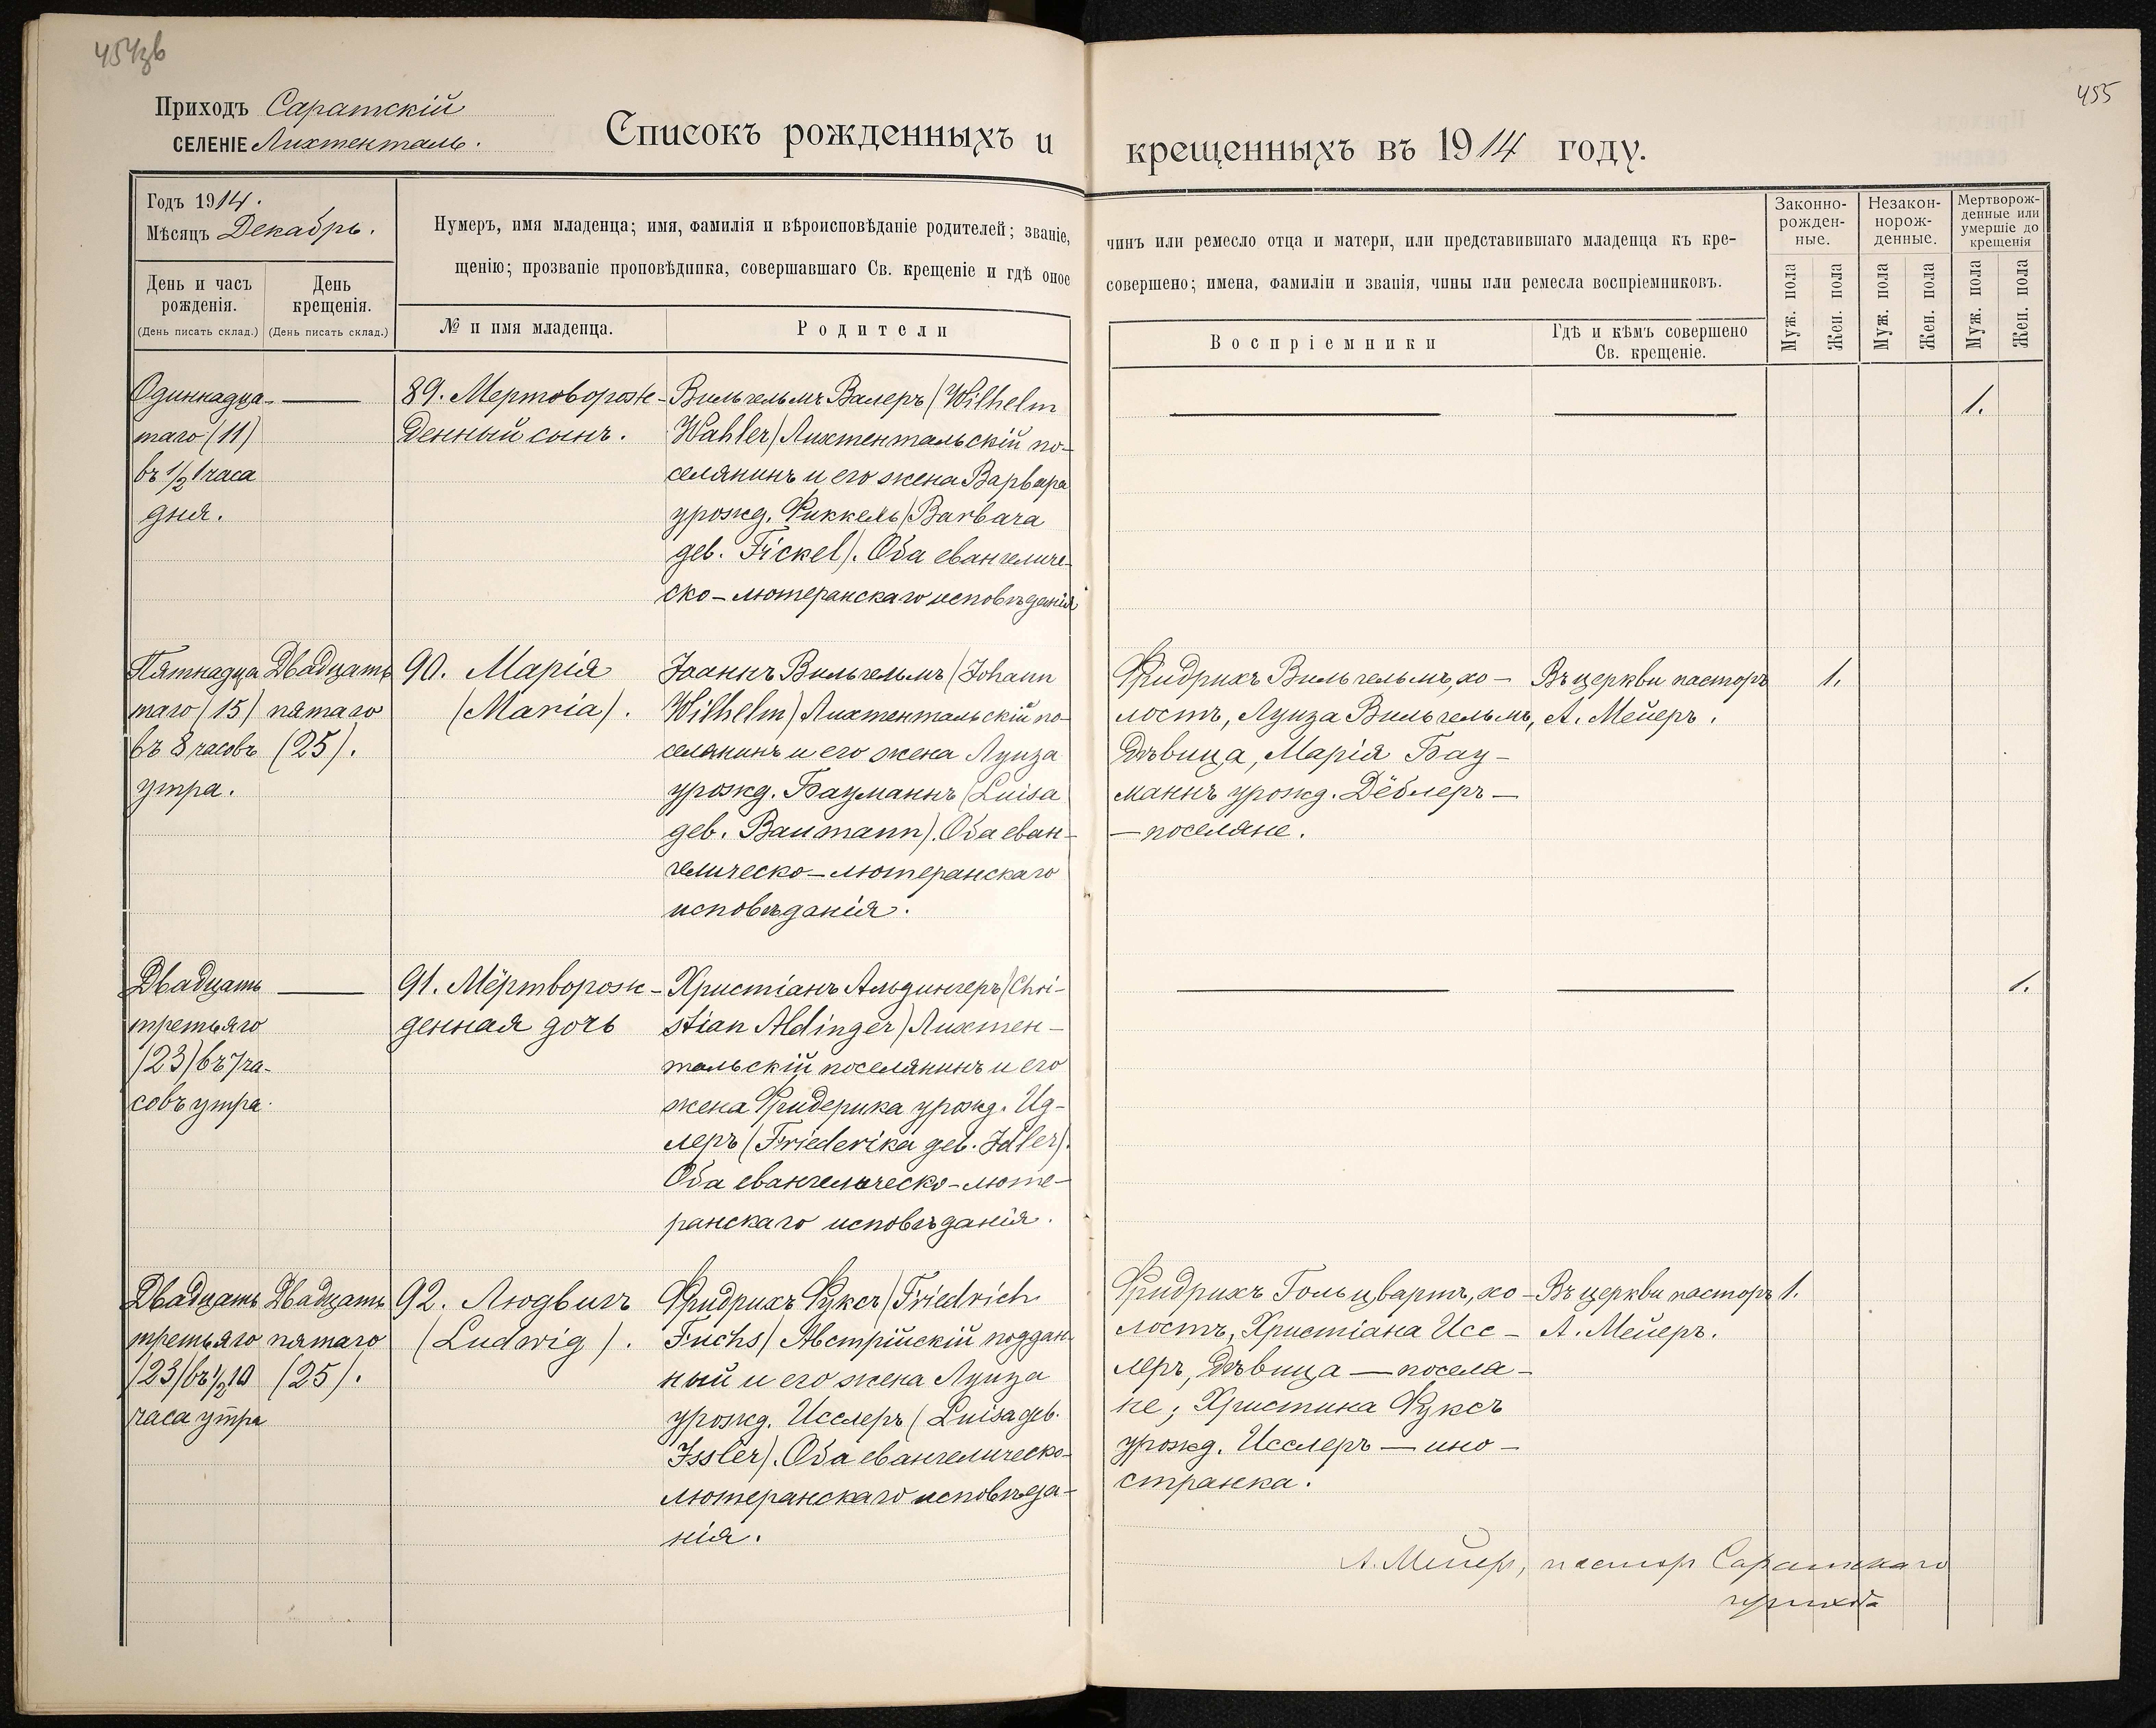 454зв
455
Приходъ Саратскій
СЕЛЕНІЕ Лихтенталь.
Списокъ рожденныхъ и крещенныхъ въ 1914 году.
Годъ 1914.
Мѣсяцъ Декабрь.
День и часъ рожденія.
(День писать склад.)
День крещенія.
(День писать склад.)
Нумеръ, имя младенца; имя, фамилія и вѣроисповѣданіе родителей; званіе, чинъ или ремесло отца и матери, или представившаго младенца къ кре-
щенію; прозваніе проповѣдника, совершавшаго Св. крещеніе и гдѣ оное совершено; имена, фамиліи и званія, чины или ремесла воспріемниковъ.
№ и имя младенца.
Родители
Воспріемники
Гдѣ и кѣмъ совершено
Св. крещеніе.
Законно-
рожден-
ные.
Незакон-
норож-
денные.
Мертворож-
денные или
умершіе до
крещенія
Муж. пола
Жен. пола
Муж. пола
Жен. пола
Муж. пола
Жен. пола
Одиннадца-
таго (11)
въ ½ 1 часа
дня.
89. Мертворож-
денный сынъ.
Вильгельмъ Валеръ (Wilhelm
Wahler) Лихтентальскій по-
селянинъ и его жена Варвара
урожд. Фиккель (Barbara
geb. Fickel). Оба евангеличе-
ско-лютеранскаго исповѣданія
1.
Пятнадца
таго (15)
въ 8 часовъ
утра.
Двадцать
пятаго
(25).
90. Марія
(Maria).
Іоаннъ Вильгельмъ (Johann
Wilhelm) Лихтентальскій по-
селянинъ и его жена Луиза
урожд. Бауманнъ (Luisa
geb. Baumann). Оба еван-
гелическо-лютеранскаго
исповѣданія.
Фридрихъ Вильгельмъ, хо-
лостъ, Луиза Вильгельмъ,
дѣвица, Марія Бау-
маннъ урожд. Дёблеръ —
— поселяне.
Въ церкви пасторъ
А. Мейеръ.
1.
Двадцать
третьяго
(23) въ 7 ча-
совъ утра.
91. Мёртворож-
денная дочь
Христіанъ Альдингеръ (Chri-
stian Aldinger) Лихтен-
тальскій поселянинъ и его
жена Фридерика урожд. Ид-
леръ (Friederika geb. Idler).
Оба евангелическо-люте-
ранскаго исповѣданія.
1.
Двадцать
третьяго
(23) въ ½ 10
часа утра
Двадцать
пятаго
(25).
92. Людвигъ
(Ludwig).
Фридрихъ Фуксъ (Friedrich
Fuchs) Австрійскій поддан-
ный и его жена Луиза
урожд. Исслеръ (Luisa geb.
Issler). Оба евангелическо-
лютеранскаго исповѣда-
нія.
Фридрихъ Гольцвартъ, хо-
лостъ, Христіана Исс-
леръ, дѣвица — поселя-
не; Христина Фуксъ
урожд. Исслеръ — ино-
странка.
Въ церкви пасторъ
А. Мейеръ.
1.
А. Мейер, пастор Саратскаго
прихода